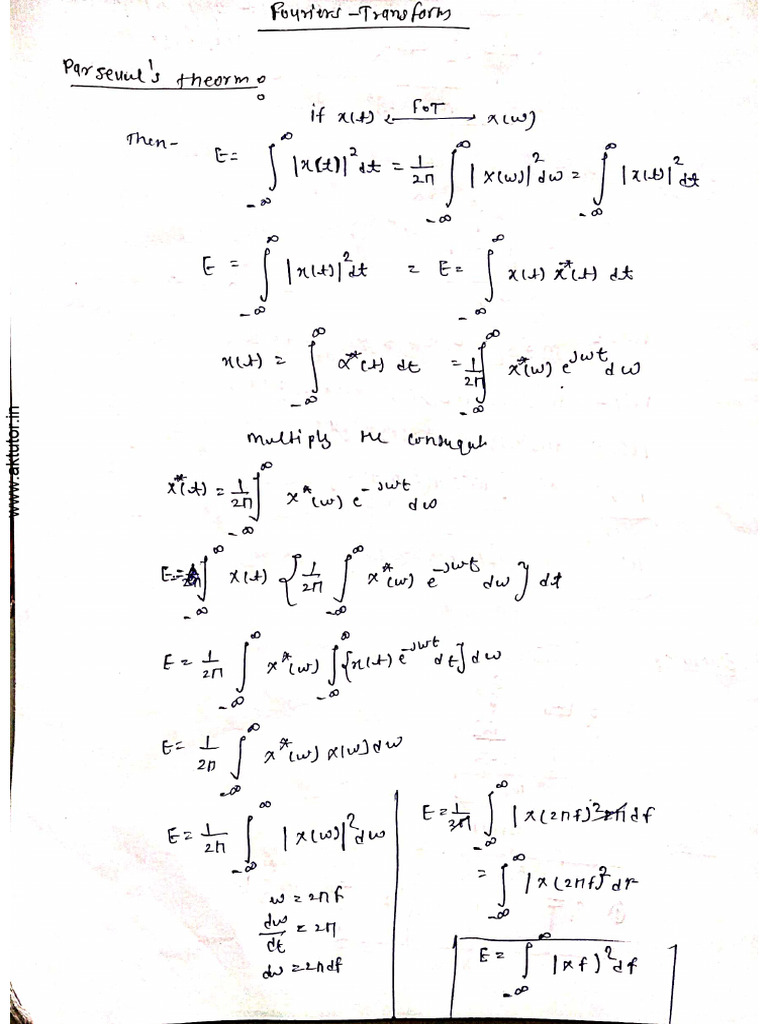 Fouriers - Transform
Parseval's theorm :
if x(t) ⟷ F.T x(ω)
Then- E = ∫_{-∞}^{∞} |x(t)|² dt = 1/2π ∫_{-∞}^{∞} |x(ω)|² dω = ∫_{-∞}^{∞} |x(t)|² dt
E = ∫_{-∞}^{∞} |x(t)|² dt = E = ∫_{-∞}^{∞} x(t) x*(t) dt
x(t) = ∫_{-∞}^{∞} x*(t) dt = 1/2π ∫_{-∞}^{∞} x*(ω) e^{jωt} dω
multiply the
x*(t) = 1/2π ∫_{-∞}^{∞} x*(ω) e^{-jωt} dω
E = ∫_{-∞}^{∞} x(t) { 1/2π ∫_{-∞}^{∞} x*(ω) e^{-jωt} dω } dt
E = 1/2π ∫_{-∞}^{∞} x*(ω) ∫_{-∞}^{∞} {x(t) e^{-jωt} dt} dω
E = 1/2π ∫_{-∞}^{∞} x*(ω) x(ω) dω
E = 1/2π ∫_{-∞}^{∞} |x(ω)|² dω
ω = 2πf
dω/dt = 2π
dω = 2πdf
E = 1/2π ∫_{-∞}^{∞} |x(2πf)² 2π df
= ∫_{-∞}^{∞} |x(2πf)² df
E = ∫_{-∞}^{∞} |xf)² df
www.aktutor.in